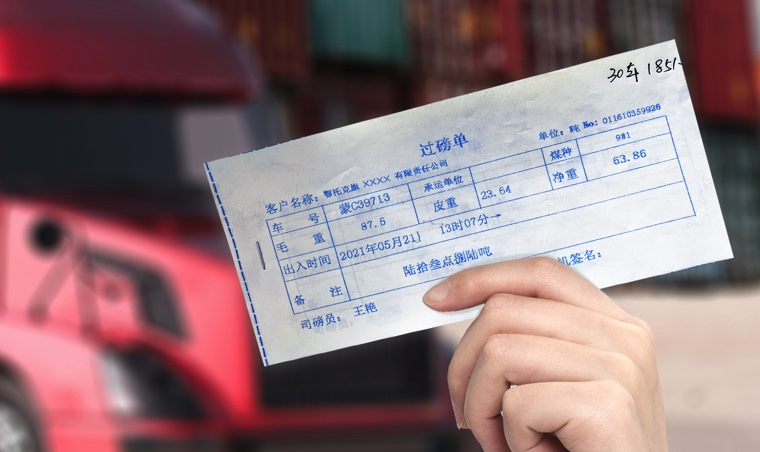 30车 1851
过磅单
单位: 吨 No: 011610359926
客户名称: 鄂托克旗 XXXX 有限责任公司
车 号 蒙C39713 承运单位 煤种 9#1
毛 重 87.5 皮重 23.64 净重 63.86
出入时间 2021年05月21 13时07分→
备 注 陆拾叁点捌陆吨
司磅员: 王艳 机签名: